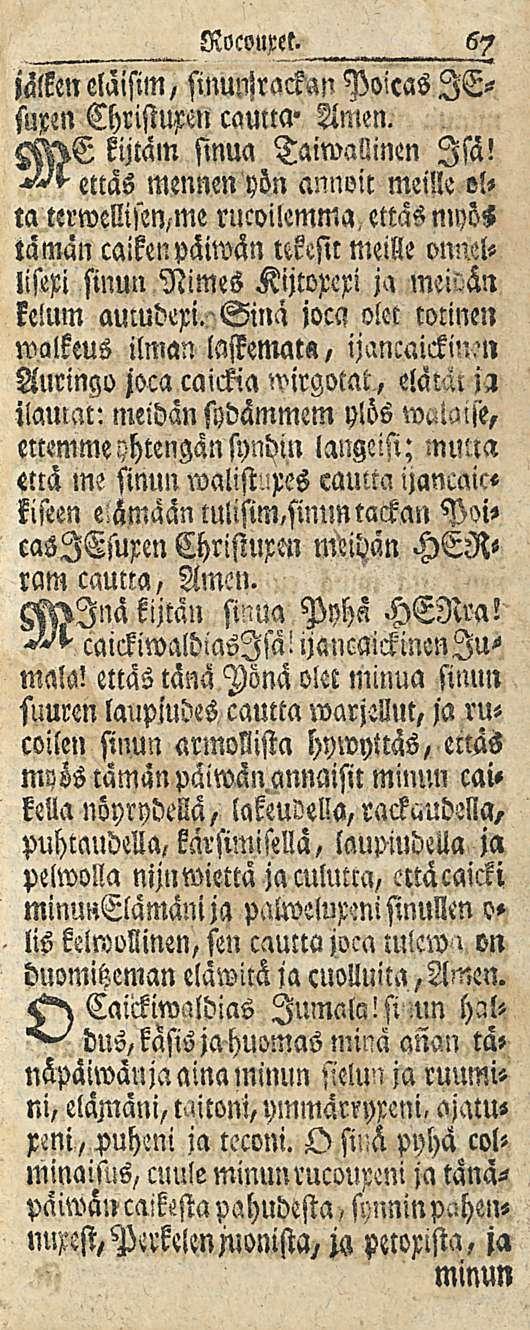 Rocouxet. 67
jälken eläisim, sinun rackan Poicas JE-
suxen Christuxen cautta. Amen.
ME kijtäm sinua Taiwallinen Isä!
ettäs mennen yön annoit meille ol-
ta terwellisen, me rucoilemma, ettäs myös
tämän caiken päiwän tekesit meille onnel-
lisexi sinun Nimes Kijtoxexi ja meidän
kelum autudexi. Sinä joca olet totinen
walkeus ilman laskemata, ijancaickinen
Auringo joca caickia wirgotat, elätät ja
ilautat: meidän sydämmem ylös walaise,
ettemme yhtengän syndin langeisi; mutta
että me sinun walistuxes cautta ijancaic-
kiseen elämään tulisim, sinun rackan Poi-
cas JEsuxen Christuxen meidän HER-
ram cautta, Amen.
MInä kijtän sinua Pyhä HERra!
caickiwaldias Isä! ijancaickinen Ju-
mala! ettäs tänä Yönä olet minua sinun
suuren laupiudes cautta warjellut, ja ru-
coilen sinun armollista hywyttäs, ettäs
myös tämän päiwän annaisit minun cai-
kella nöyrydellä, lakeudella, rackaudella,
puhtaudella, kärsimisellä, laupiudella ja
pelwolla nijn wiettä ja culutta, että caicki
minun Elämäni ja palweluxeni sinullen o-
lis kelwollinen, sen cautta joca tulewa on
duomitzeman eläwitä ja cuolluita, Amen.
O Caickiwaldias Jumala! sinun hal-
dus, käsis ja huomas minä añan tä-
näpäiwän ja aina minun sielun ja ruumi-
ni, elämäni, taitoni, ymmärryxeni, ajatu-
xeni, puheni ja teconi. O sinä pyhä col-
minaisus, cuule minun rucouxeni ja tänä-
päiwän caikesta pahudesta, synnin pahen-
nuxest, Perkelen juonista, ja petoxista, ja
minun